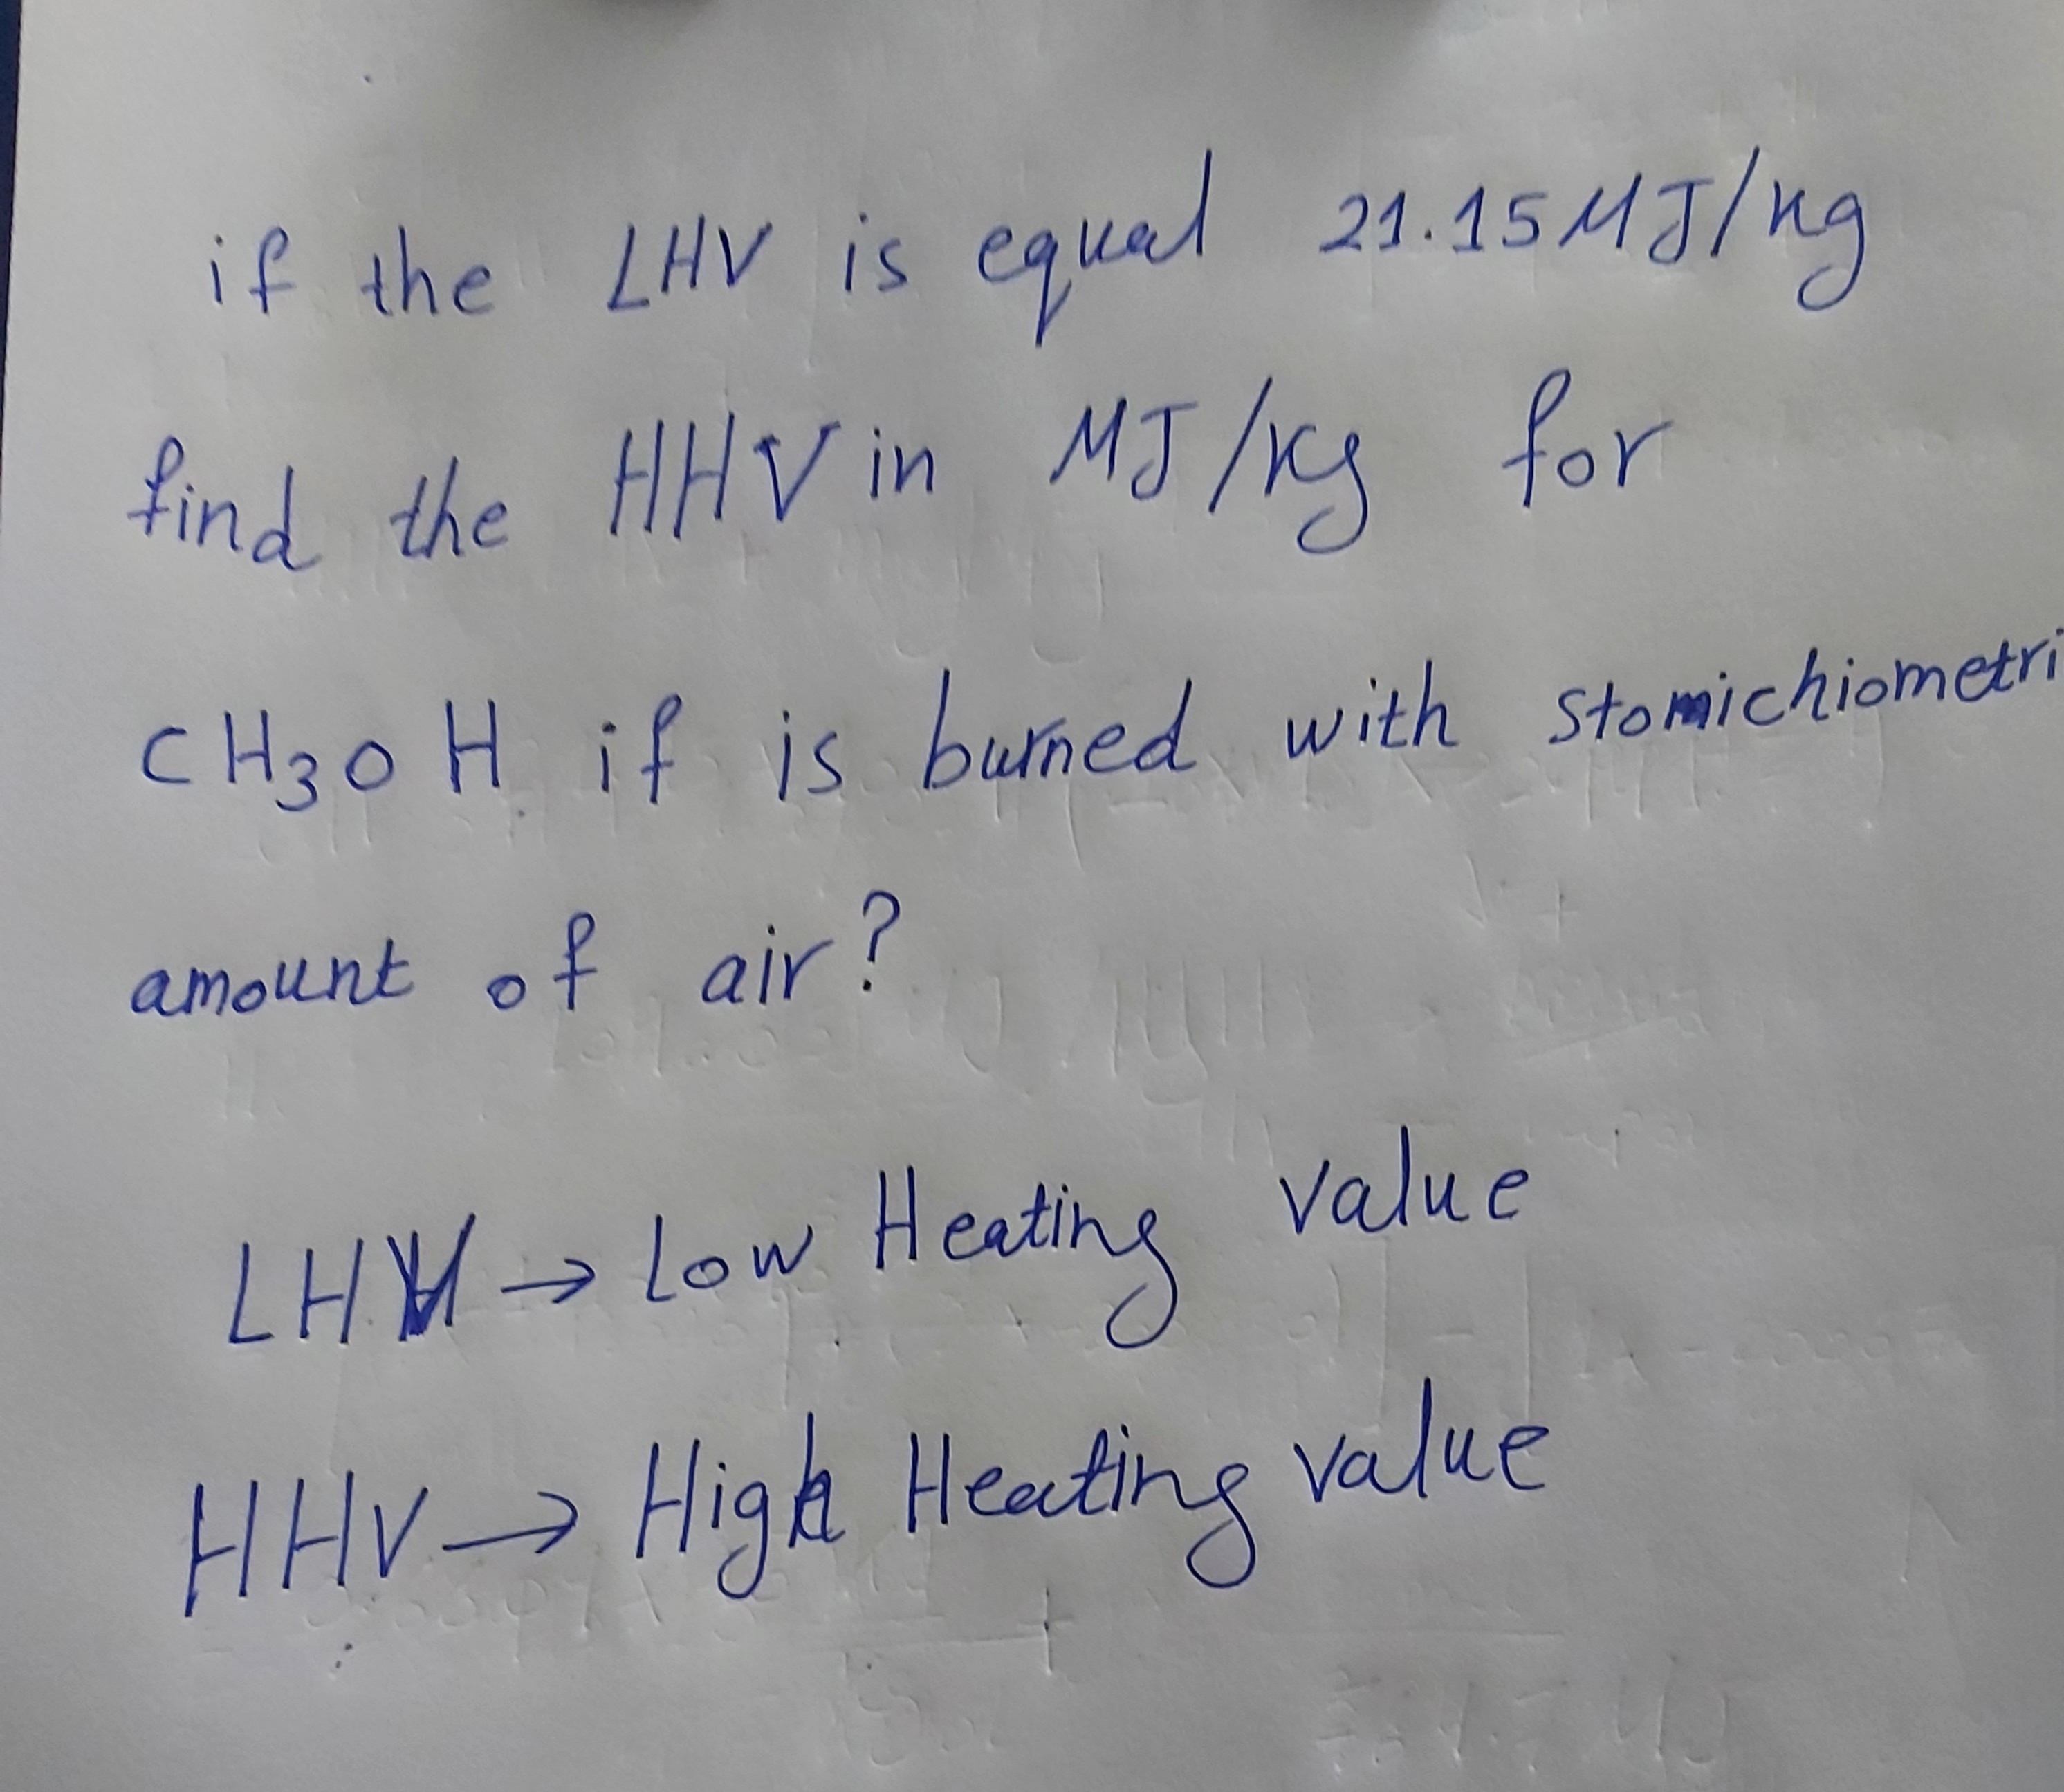 if the LHV is equal 21.15 MJ/kg
find the HHV in MJ/kg for
CH3OH if is burned with stomichiometri
amount of air?
LHV → Low Heating value
HHV → High Heating value